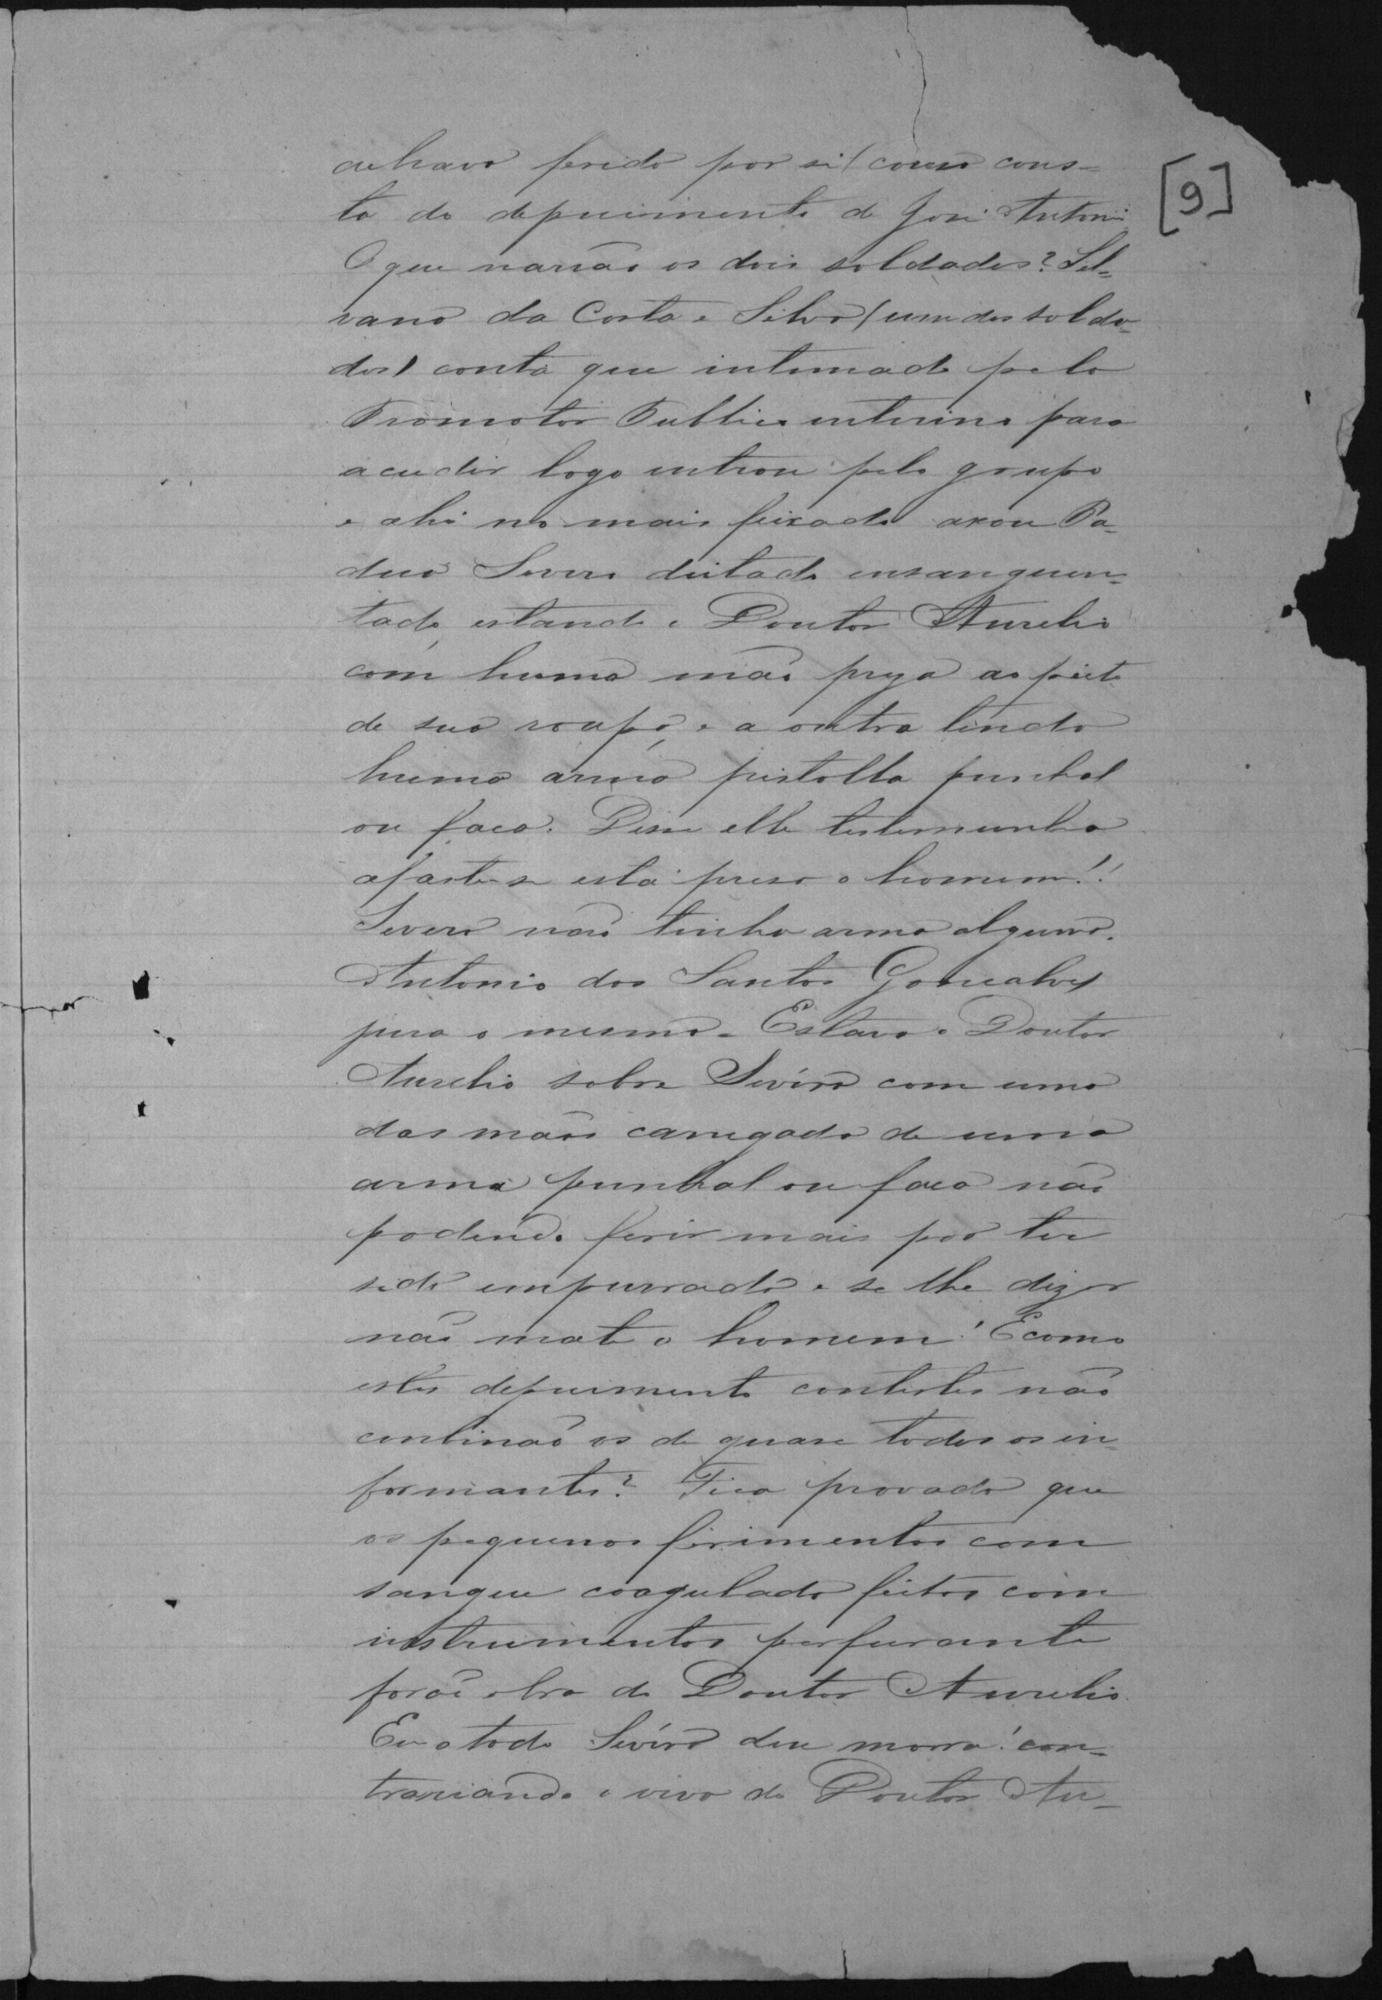 achava ferido por si (como cons-
ta do depuimento de José Antonio
[9]
O que narrão os dois soldados? Sil-
vano da Costa e Silva (um dos solda-
dos) conta que intimado pelo
Promotor Publico interino para
acudir logo entrou pelo grupo
e ahi no mais feixado axou Pa-
dua Severo deitado ensanguen-
tado estando o Doutor Aurelio
com huma mão preza ao peito
de sua roupa, e a outra tendo
huma arma pistolla punhal
ou faca. Disse elle testemunha
afaste-se está preso o homem!!
Severo não tinha arma alguma.
Antonio dos Santos Gonçalves
jura o mesmo - Estava o Doutor
Aurelio sobre Sevéro com uma
das mãos carregada de uma
arma punhal ou faca não
podendo ferir mais por ter
sido empurrado e se lhe dizer
não mate o homem! E como
estes depuimento contestes não
continão os de quase todos os in-
formantes? Fica provado que
os pequenos ferimentos com
sangue coagulado feitos com
instrumentos perfurante
forão obra do Doutor Aurelio.
E a todo Sevéro deu morra! con-
trariando o viva do Doutor Au-